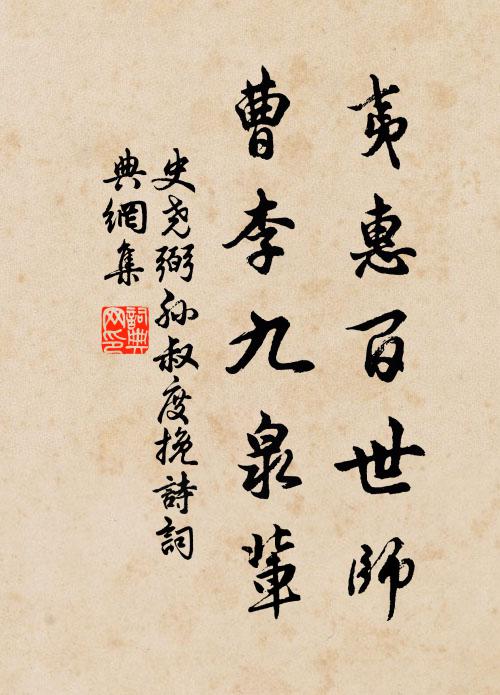 夷惠百世師
曹李九泉輩
史尧弼孙叔度挽詩詞
典網集
詞典
网印